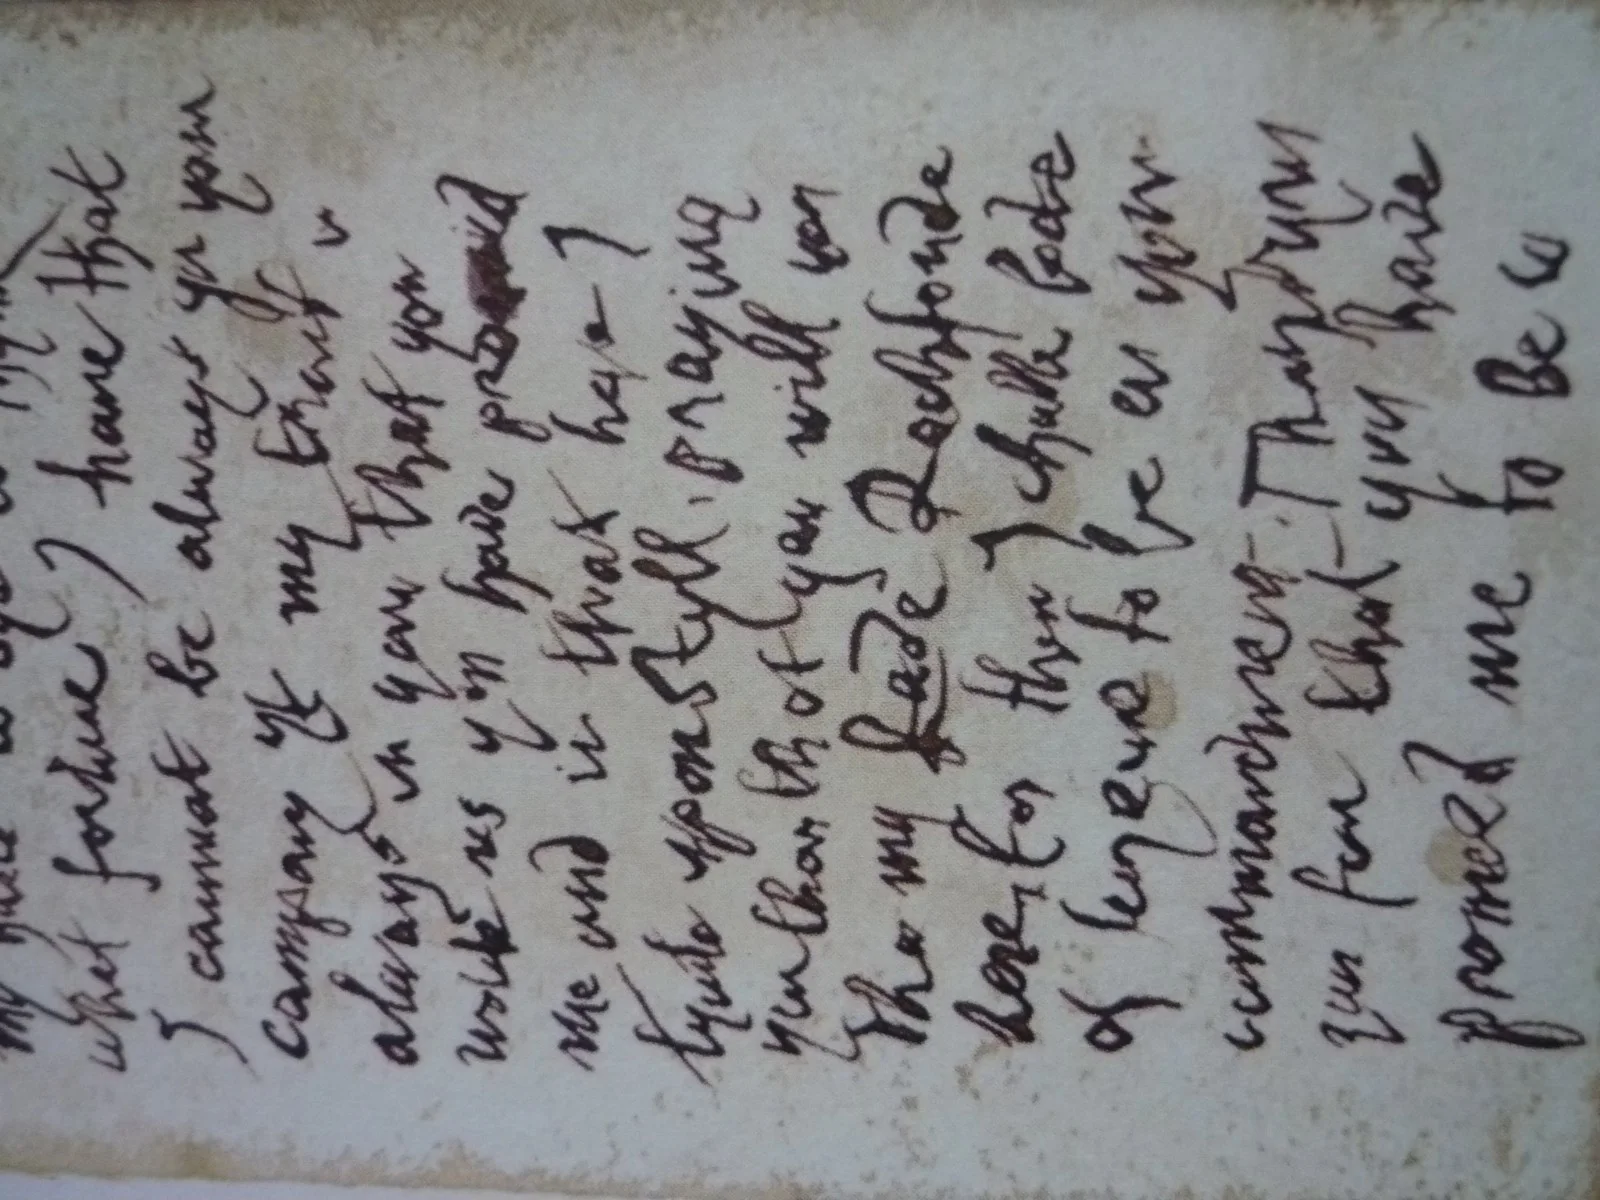 what fortune I have that
I cannot be always yn your
company yt my trust
always in you that you
wolbe as you have
me and in that hope I
truste upon styll praying
you than that you will com
whan my lade Rochforde
here for then I shalle beste
at leysure to be at your
commandment Thankyng
you for that you have
promised me to be